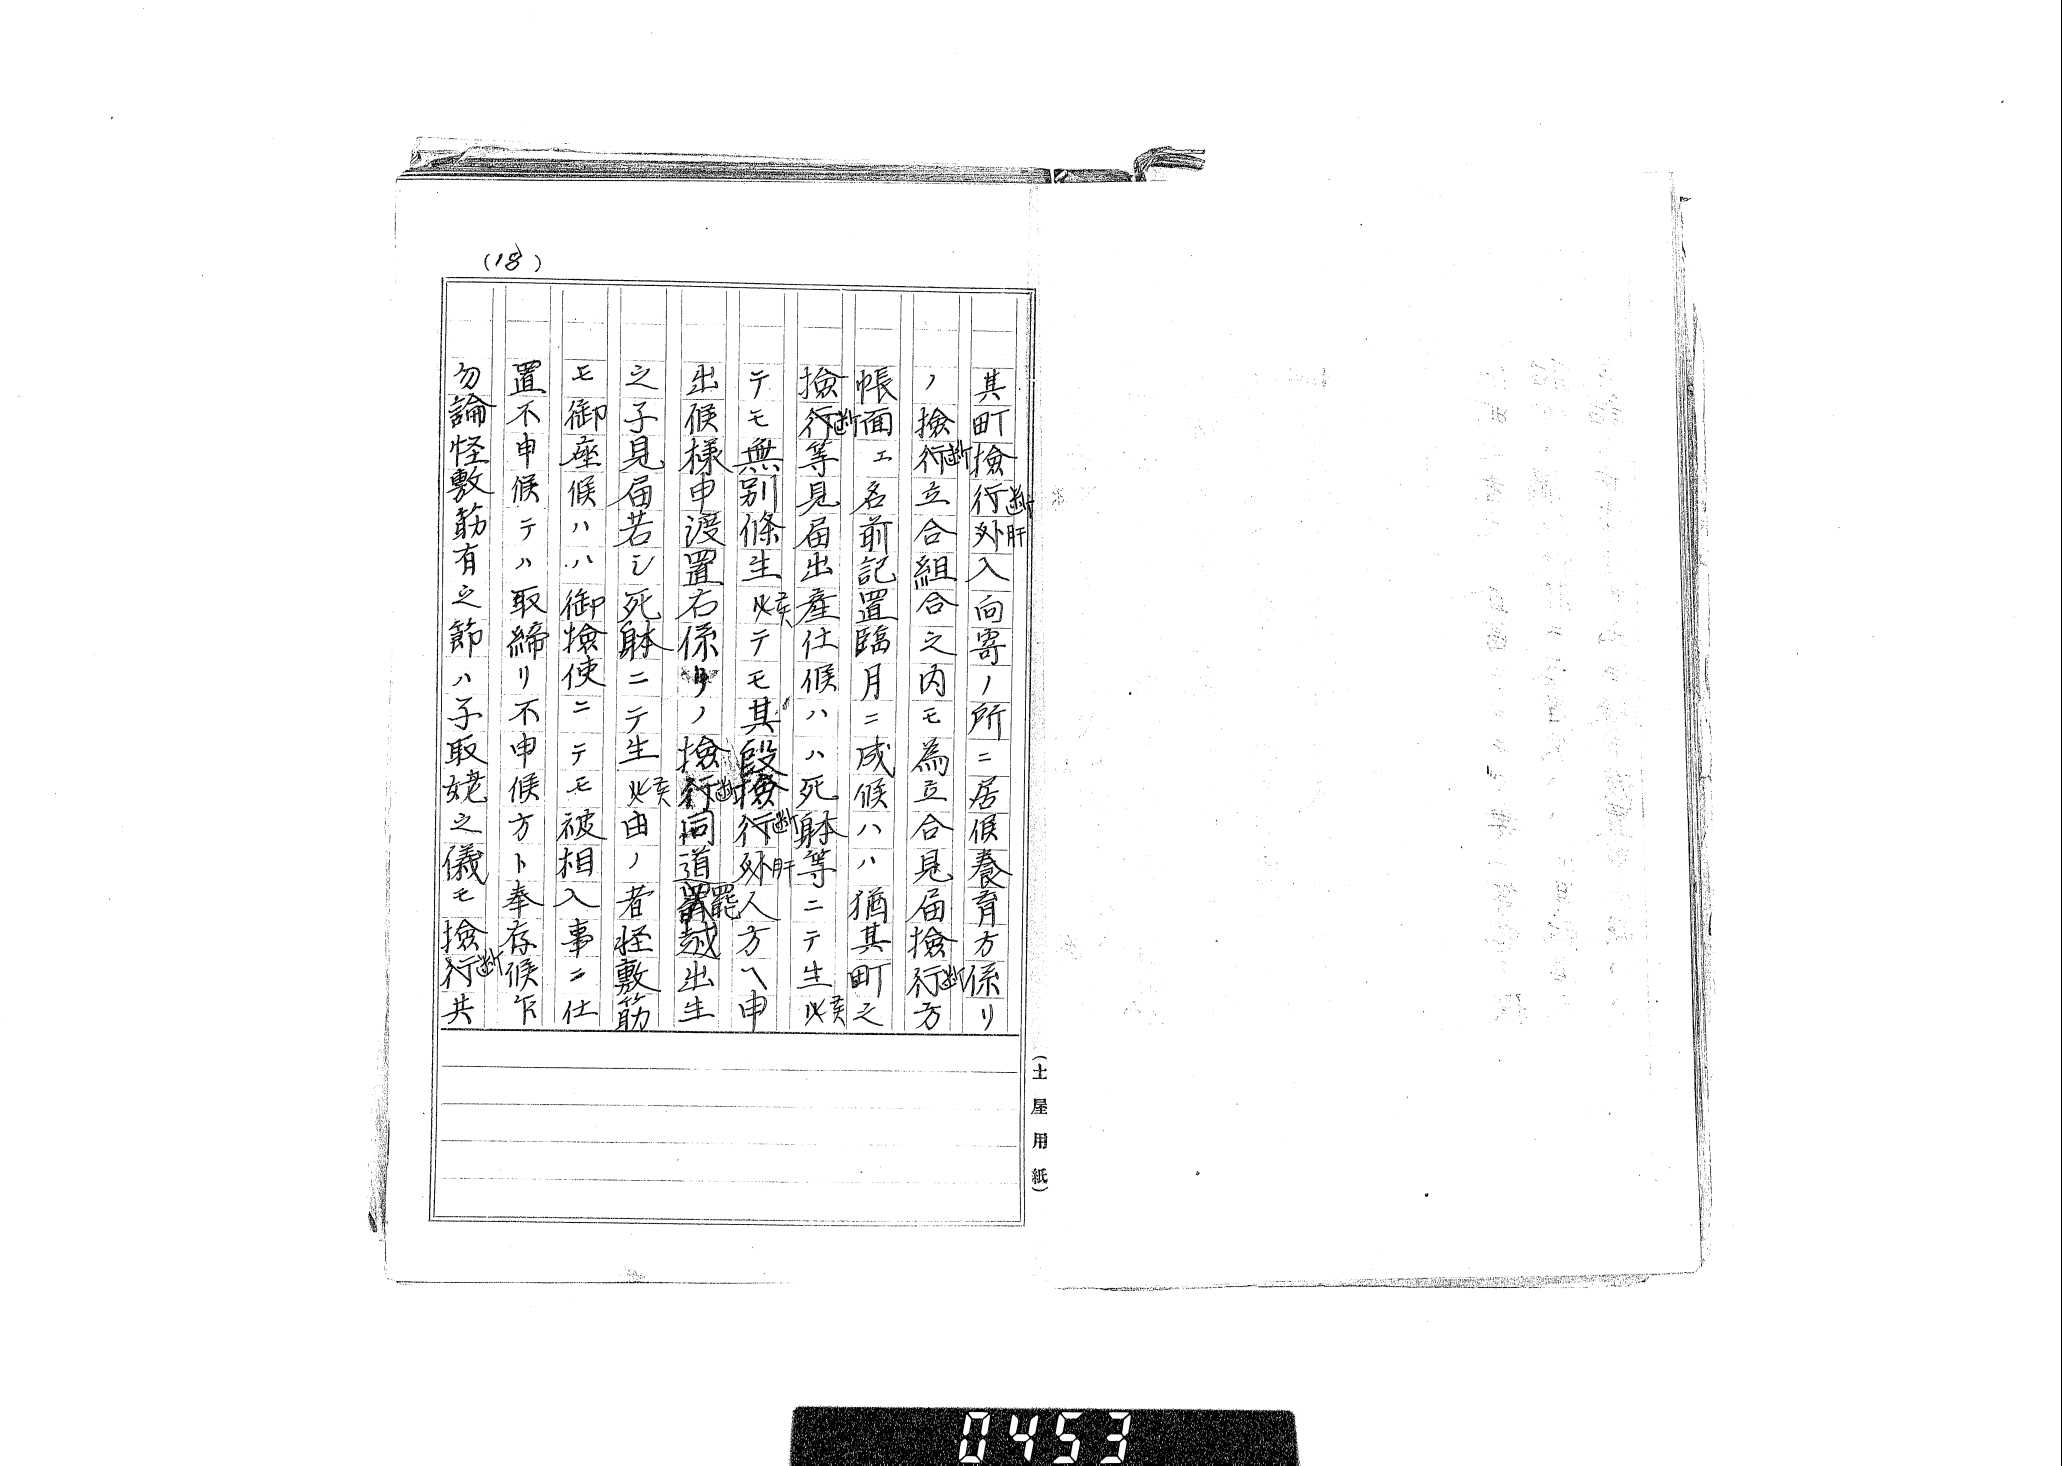 (18)
其町撿行断外肝入向寄ノ所ニ居候養育方係リ
ノ撿行断立合組合之内モ為立合見届撿行断方
帳面エ名前記置臨月ニ成候ハハ猶其町之
撿行断等見届出産仕候ハハ死躰等ニテ生候
テモ無別條生候テモ其段撿行断外肝人方ヘ申
出候様申渡置右係リノ撿行断同道罷越出生
之子見届若シ死躰ニテ生候由ノ者怪敷筋
モ御座候ハハ御撿使ニテモ被相入事ニ仕
置不申候テハ取締リ不申候方ト奉存候乍
勿論怪敷筋有之節ハ子取姥之儀モ撿行断共
(土屋用紙)
0453